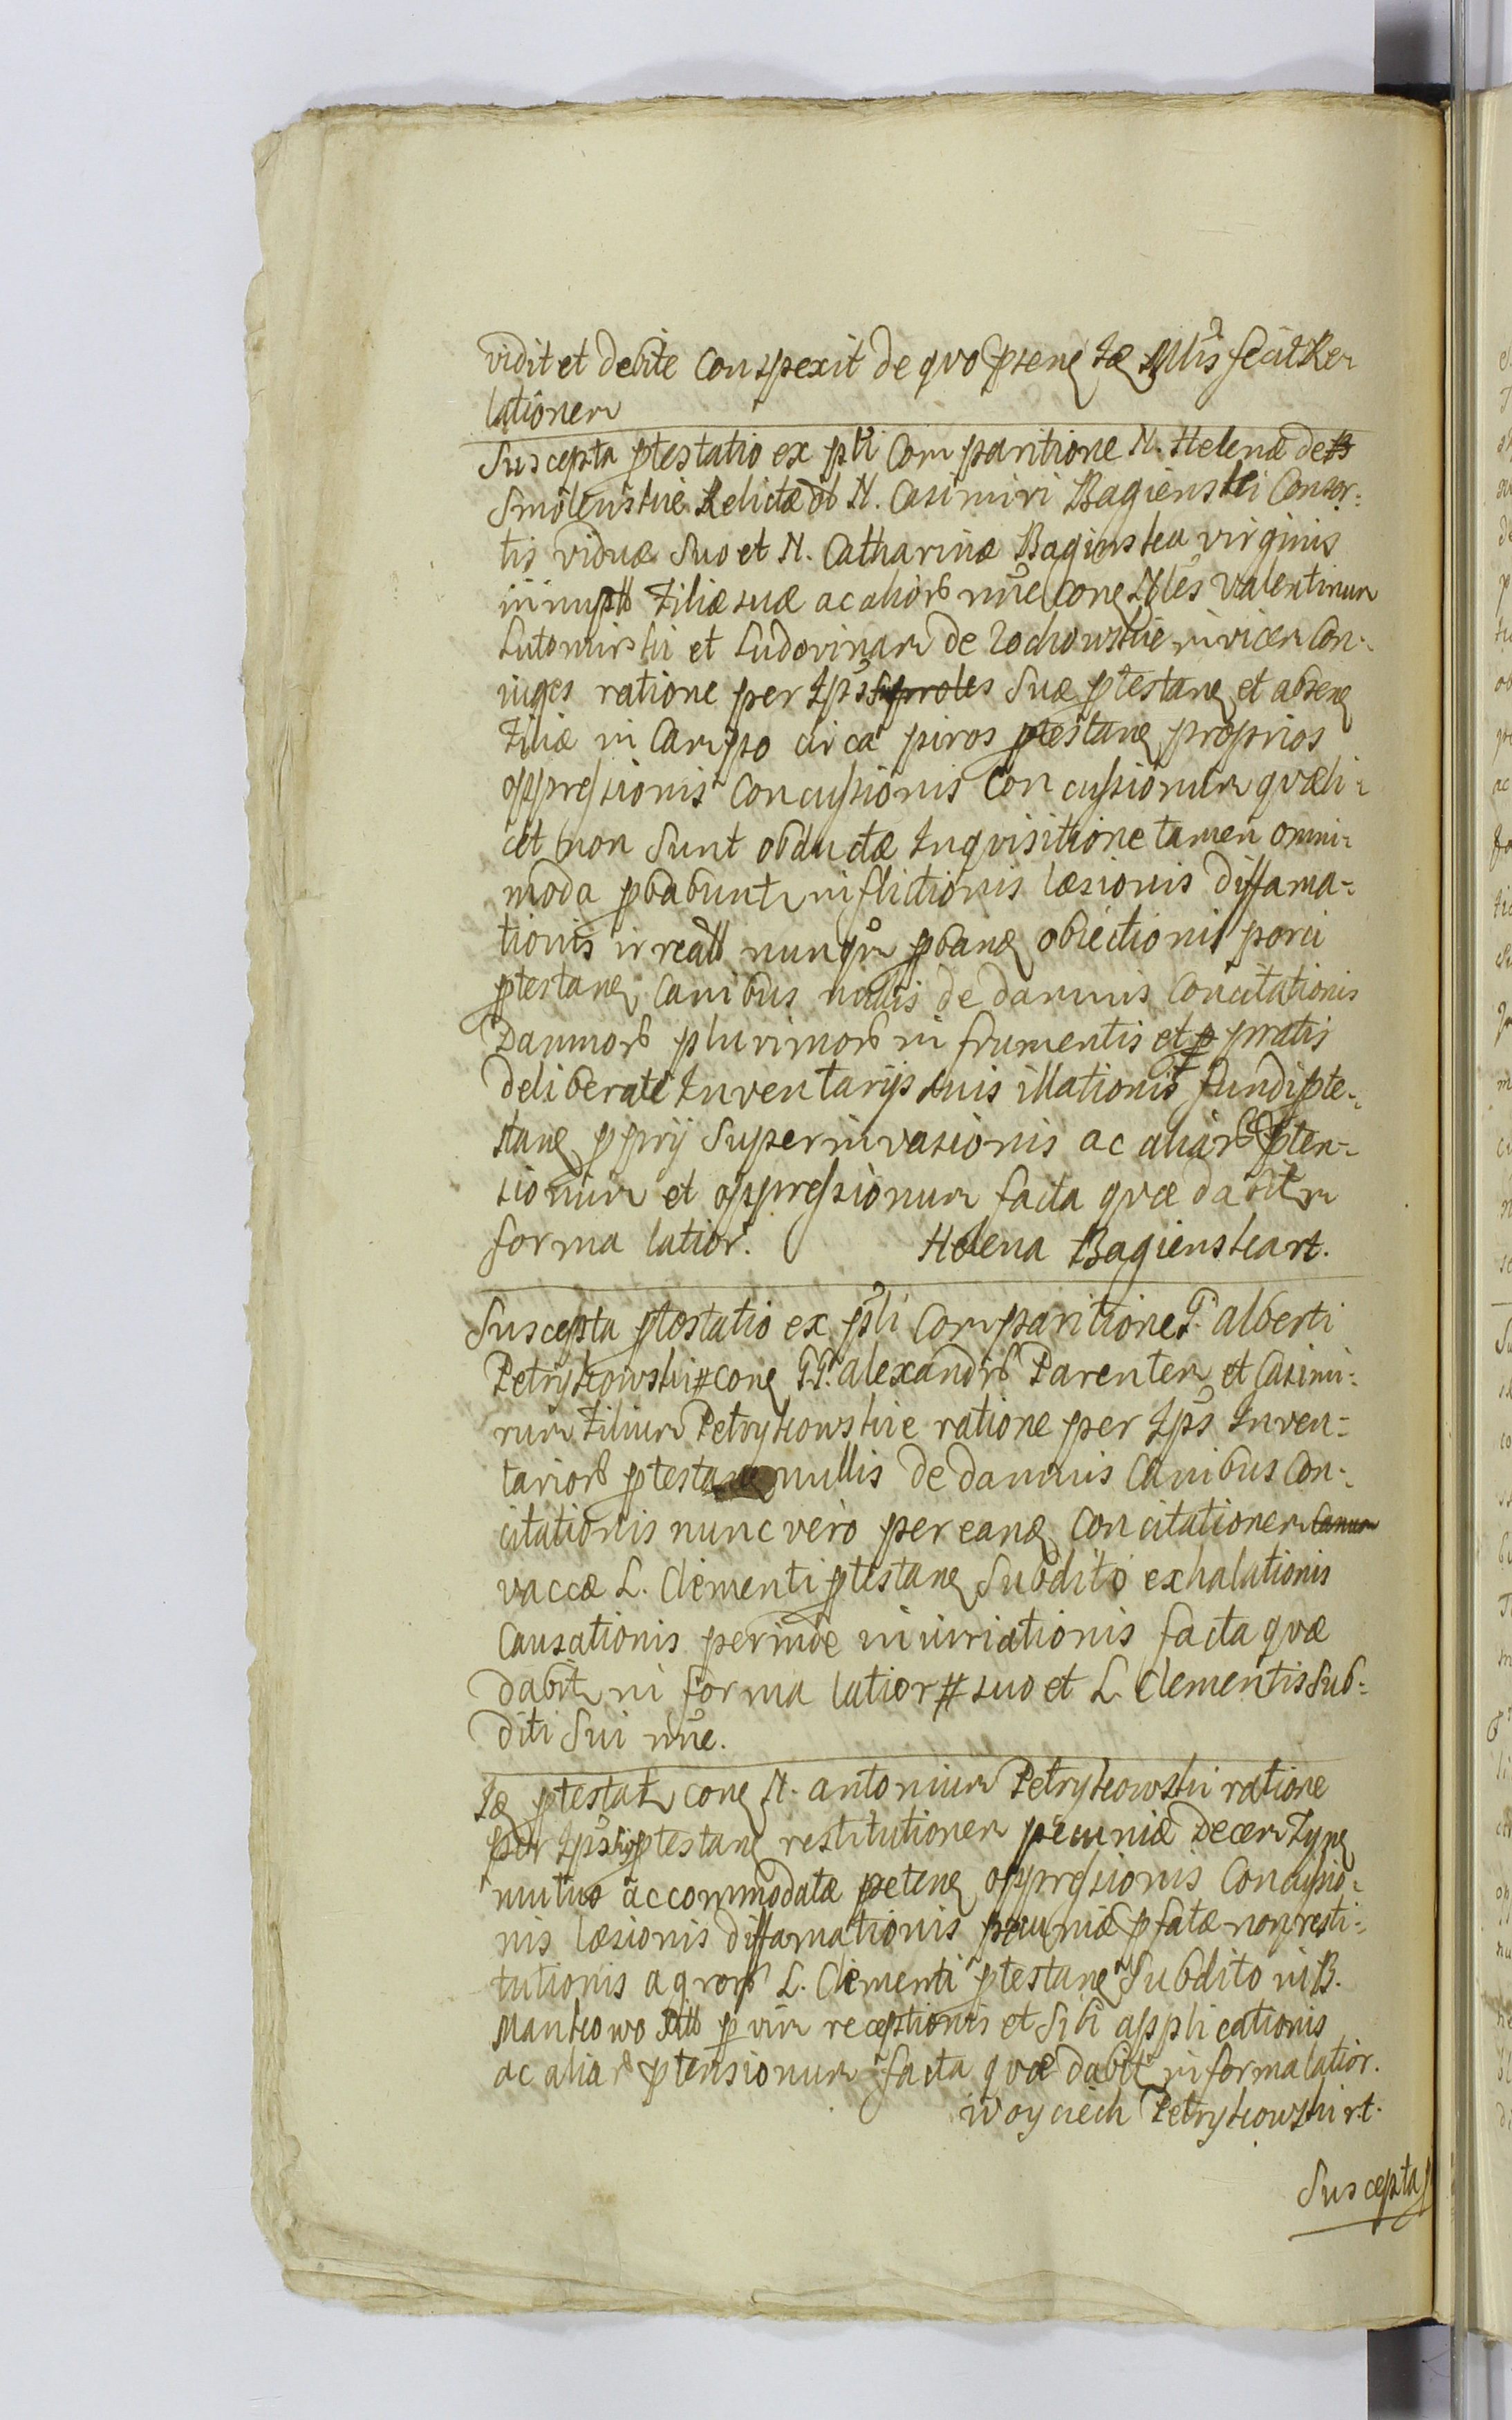 vidit et debite Conspexit de quo psens Idē Mlīs fecit Re
lationem
Suscepta ptestatio ex pti Comparitione N. Helenæ de
Smolenskie Relictæ ol N. Casimiri Bagienski Consor-
tis viduæ Suo et N. Catharinæ Bagienska virginis
Filiæ suæ ac alior nne Con Nbles Valentinum
Lutomirski et Ludovinam de Zochowskie invicem Con-
iuges ratione per Ips Suæ ptestan et absen
Filiæ in Campo circa piros ptestan proprios
oppressionis Concussionis Concussionum quæ li-
cet non Sunt obductæ Inquisitione tamen omni-
moda pbabunt inflictionis læsionis diffama-
tionis nunqm pban obiectionis porci
ptestan Canibus nullis de damnis Concitationis
Damnor plurimor in frumentis et pratis
deliberate Inventarijs suis illationis fundi pte-
stan pprij Superinvasionis ac aliar pten-
sionum et oppressionum facta quæ dabit in
forma latior. Helena Bagienska rt.
Suscepta ptestatio ex pti Comparitione P. alberti
Petrykowski # con PP. alexandr Parentem et Casimi-
rum Filium Petrykowskie ratione per Ips Inven-
tarior ptestan nullis de damnis Canibus Con-
citationis nunc vero per ean Concitationem
vaccæ L. Clementi ptestan Subdito exhalationis
Causationis perinde iniuriationis facta quæ
dabit in forma latior # suo et L. Clementis Sub-
diti Sui nne.
Id ptestat con N. antonium Petrykowski ratione
per Ips ptestan restitutionem pecuniæ decem Tyn
mutuo accommodatæ peten oppressionis Concussio-
nis læsionis diffamationis pecuniæ pfatæ non resti-
tutionis agror L. Clementi ptestan Subdito in B.
Mankowo p vim receptionis et Sibi applicationis
ac aliar ptensionum facta quæ dabit in forma latior.
Woyciech Petrykowski rt.
Suscepta